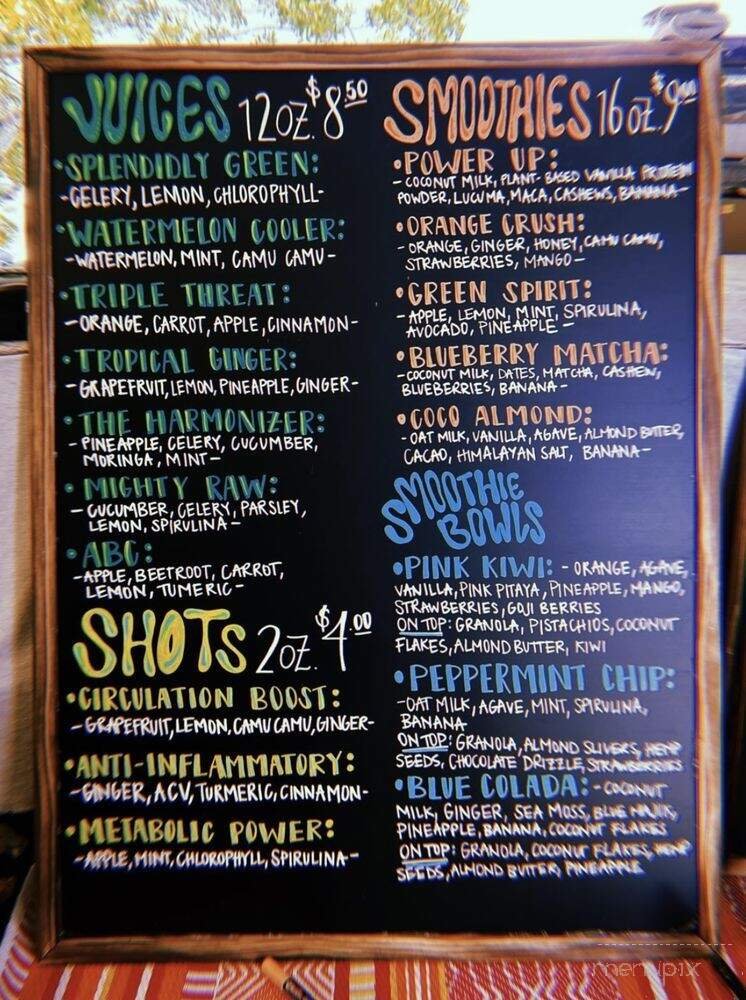 JUICES 12oz. $8.50
•SPLENDIDLY GREEN:
-CELERY, LEMON, CHLOROPHYLL-
•WATERMELON COOLER:
-WATERMELON, MINT, CAMU CAMU-
•TRIPLE THREAT:
-ORANGE, CARROT, APPLE, CINNAMON-
•TROPICAL GINGER:
-GRAPEFRUIT, LEMON, PINEAPPLE, GINGER-
•THE HARMONIZER:
-PINEAPPLE, CELERY, CUCUMBER,
MORINGA, MINT-
•MIGHTY RAW:
-CUCUMBER, CELERY, PARSLEY,
LEMON, SPIRULINA-
•ABC:
-APPLE, BEETROOT, CARROT,
LEMON, TUMERIC-
SHOTS 2oz. $4.00
•CIRCULATION BOOST:
-GRAPEFRUIT, LEMON, CAMU CAMU, GINGER-
•ANTI-INFLAMMATORY:
-GINGER, ACV, TURMERIC, CINNAMON-
•METABOLIC POWER:
-APPLE, MINT, CHLOROPHYLL, SPIRULINA-
SMOOTHIES 16oz. $9.00
•POWER UP:
-COCONUT MILK, PLANT-BASED VANILLA PROTEIN
POWDER, LUCUMA, MACA, CASHEWS, BANANA-
•ORANGE CRUSH:
-ORANGE, GINGER, HONEY, CAMU CAMU,
STRAWBERRIES, MANGO-
•GREEN SPIRIT:
-APPLE, LEMON, MINT, SPIRULINA,
AVOCADO, PINEAPPLE-
•BLUEBERRY MATCHA:
-COCONUT MILK, DATES, MATCHA, CASHEW,
BLUEBERRIES, BANANA-
•COCO ALMOND:
-OAT MILK, VANILLA, AGAVE, ALMOND BUTTER,
CACAO, HIMALAYAN SALT, BANANA-
SMOOTHIE
BOWLS
•PINK KIWI: -ORANGE, AGAVE,
VANILLA, PINK PITAYA, PINEAPPLE, MANGO,
STRAWBERRIES, GOJI BERRIES
ON TOP: GRANOLA, PISTACHIOS, COCONUT
FLAKES, ALMOND BUTTER, KIWI
•PEPPERMINT CHIP:
-OAT MILK, AGAVE, MINT, SPIRULINA,
BANANA
ON TOP: GRANOLA, ALMOND SLIVERS, HEMP
SEEDS, CHOCOLATE DRIZZLE, STRAWBERRIES
•BLUE COLADA: -COCONUT
MILK, GINGER, SEA MOSS, BLUE MAJIK,
PINEAPPLE, BANANA, COCONUT FLAKES
ON TOP: GRANOLA, COCONUT FLAKES, HEMP
SEEDS, ALMOND BUTTER, PINEAPPLE
menupix